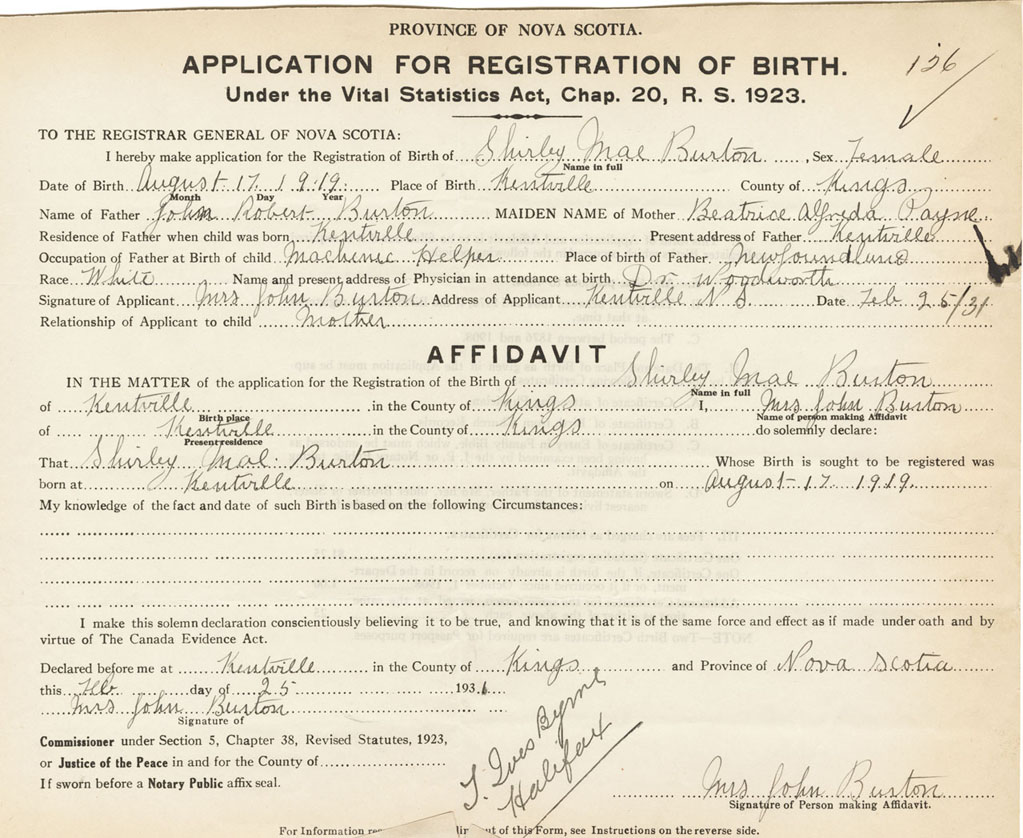 PROVINCE OF NOVA SCOTIA.
APPLICATION FOR REGISTRATION OF BIRTH.
126
Under the Vital Statistics Act, Chap. 20, R. S. 1923.
TO THE REGISTRAR GENERAL OF NOVA SCOTIA:
I hereby make application for the Registration of Birth of Shirley Mae Burton, Sex Female
Name in full
Date of Birth August 17 1919. Place of Birth Kentville County of Kings
Month Day Year
Name of Father John Robert Burton MAIDEN NAME of Mother Beatrice Alfreda Payne
Residence of Father when child was born Kentville Present address of Father Kentville
Occupation of Father at Birth of child Machinic Helper Place of birth of Father Newfoundland
Race White Name and present address of Physician in attendance at birth Dr. Woodworth
Signature of Applicant Mrs John Burton Address of Applicant Kentville N S Date Feb 25/31
Relationship of Applicant to child Mother
AFFIDAVIT
IN THE MATTER of the application for the Registration of the Birth of Shirley Mae Burton
Name in full
of Kentville in the County of Kings I, Mrs John Burton
Birth place Name of person making Affidavit
of Kentville in the County of Kings do solemnly declare:
Present residence
That Shirley Mae Burton Whose Birth is sought to be registered was
born at Kentville on August 17 1919.
My knowledge of the fact and date of such Birth is based on the following Circumstances:
I make this solemn declaration conscientiously believing it to be true, and knowing that it is of the same force and effect as if made under oath and by
virtue of The Canada Evidence Act.
Declared before me at Kentville in the County of Kings and Province of Nova Scotia
this Feb day of 25 193
Mrs John Burton
Signature of
Commissioner under Section 5, Chapter 38, Revised Statutes, 1923,
or Justice of the Peace in and for the County of
If sworn before a Notary Public affix seal.
Byrne
Halifax
Mrs John Burton
Signature of Person making Affidavit.
For Information of this Form, see Instructions on the reverse side.